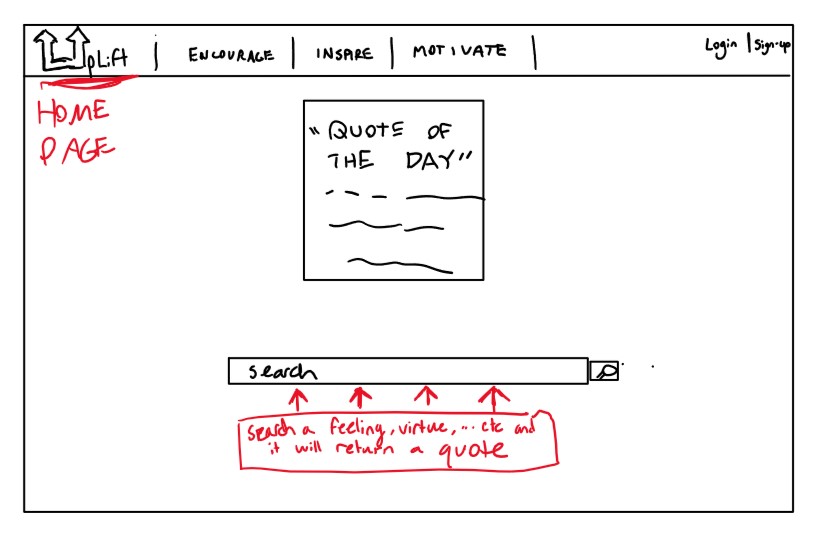 UpLift | ENCOURAGE | INSPIRE | MOTIVATE | Login | Sign-up
HOME
PAGE
"QUOTE OF
THE DAY"
search
search a feeling, virtue, ... etc and
it will return a quote